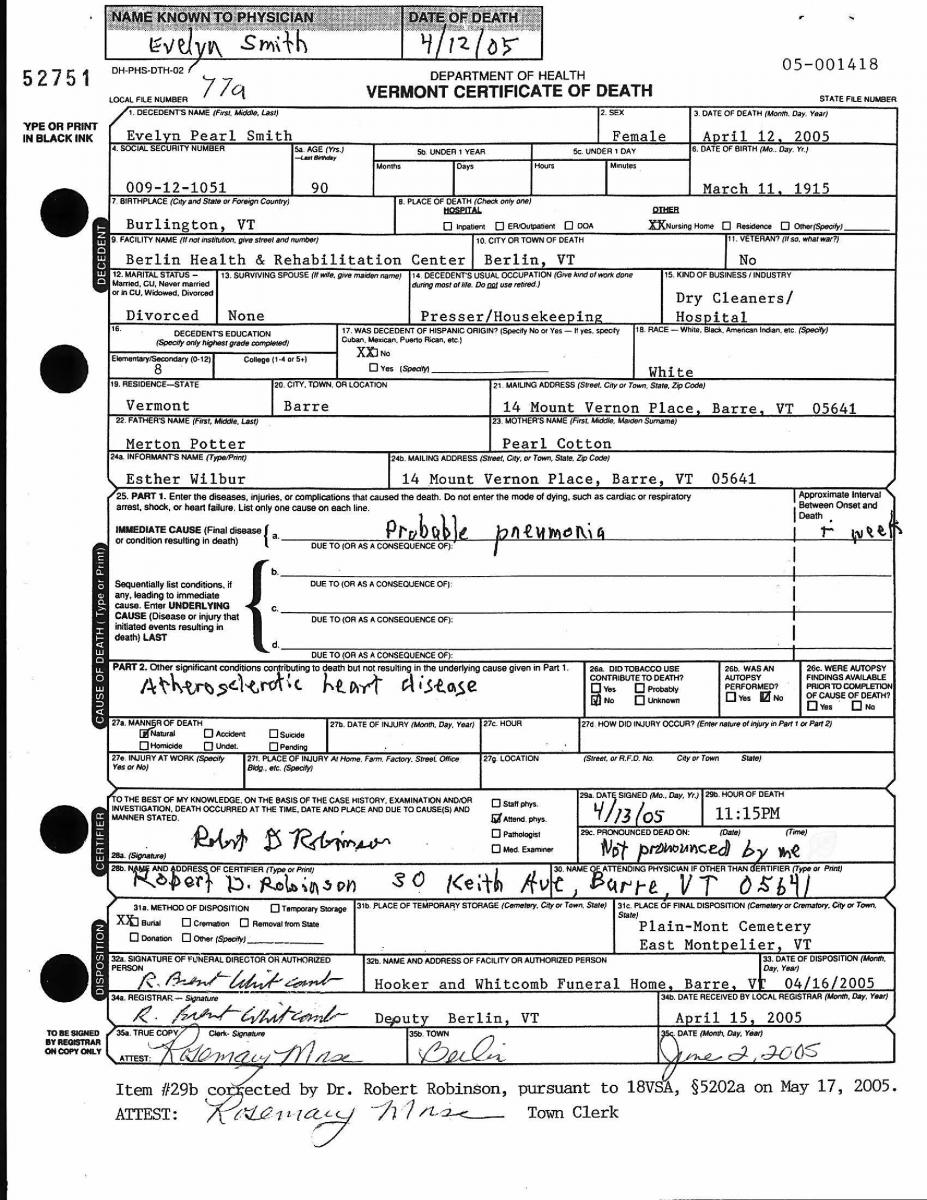 NAME KNOWN TO PHYSICIAN DATE OF DEATH
Evelyn Smith 4/12/05
05-001418
52751
DH-PHS-DTH-02
77a
DEPARTMENT OF HEALTH
VERMONT CERTIFICATE OF DEATH
LOCAL FILE NUMBER STATE FILE NUMBER
YPE OR PRINT
IN BLACK INK
1. DECEDENT'S NAME (First, Middle, Last) 2. SEX 3. DATE OF DEATH (Month, Day, Year)
Evelyn Pearl Smith Female April 12, 2005
4. SOCIAL SECURITY NUMBER 5a. AGE (Yrs.) —Last Birthday 5b. UNDER 1 YEAR 5c. UNDER 1 DAY 6. DATE OF BIRTH (Mo., Day, Yr.)
Months Days Hours Minutes
009-12-1051 90 March 11, 1915
7. BIRTHPLACE (City and State or Foreign Country) 8. PLACE OF DEATH (Check only one)
HOSPITAL OTHER
Burlington, VT Inpatient ER/Outpatient DOA XX Nursing Home Residence Other (Specify)
DECEDENT
9. FACILITY NAME (If not institution, give street and number) 10. CITY OR TOWN OF DEATH 11. VETERAN? (If so, what war?)
Berlin Health & Rehabilitation Center Berlin, VT No
12. MARITAL STATUS – Married, CU, Never married or in CU, Widowed, Divorced 13. SURVIVING SPOUSE (If wife, give maiden name) 14. DECEDENT'S USUAL OCCUPATION (Give kind of work done during most of life. Do not use retired.) 15. KIND OF BUSINESS / INDUSTRY
Dry Cleaners/
Divorced None Presser/Housekeeping Hospital
16. DECEDENT'S EDUCATION (Specify only highest grade completed) 17. WAS DECEDENT OF HISPANIC ORIGIN? (Specify No or Yes — If yes, specify Cuban, Mexican, Puerto Rican, etc.) 18. RACE — White, Black, American Indian, etc. (Specify)
XX No
Elementary/Secondary (0-12) College (1-4 or 5+) Yes (Specify)
8 White
19. RESIDENCE—STATE 20. CITY, TOWN, OR LOCATION 21. MAILING ADDRESS (Street, City or Town, State, Zip Code)
Vermont Barre 14 Mount Vernon Place, Barre, VT 05641
22. FATHER'S NAME (First, Middle, Last) 23. MOTHER'S NAME (First, Middle, Maiden Surname)
Merton Potter Pearl Cotton
24a. INFORMANT'S NAME (Type/Print) 24b. MAILING ADDRESS (Street, City, or Town, State, Zip Code)
Esther Wilbur 14 Mount Vernon Place, Barre, VT 05641
25. PART 1. Enter the diseases, injuries, or complications that caused the death. Do not enter the mode of dying, such as cardiac or respiratory
arrest, shock, or heart failure. List only one cause on each line.
Approximate Interval Between Onset and Death
IMMEDIATE CAUSE (Final disease or condition resulting in death) a. Probable pneumonia week
DUE TO (OR AS A CONSEQUENCE OF):
b.
DUE TO (OR AS A CONSEQUENCE OF):
Sequentially list conditions, if any, leading to immediate cause. Enter UNDERLYING CAUSE (Disease or injury that initiated events resulting in death) LAST
c.
DUE TO (OR AS A CONSEQUENCE OF):
d.
DUE TO (OR AS A CONSEQUENCE OF):
CAUSE OF DEATH (Type or Print)
PART 2. Other significant conditions contributing to death but not resulting in the underlying cause given in Part 1.
Atherosclerotic heart disease
26a. DID TOBACCO USE CONTRIBUTE TO DEATH? 26b. WAS AN AUTOPSY PERFORMED? 26c. WERE AUTOPSY FINDINGS AVAILABLE PRIOR TO COMPLETION OF CAUSE OF DEATH?
Yes Probably Yes No
No Unknown Yes No
27a. MANNER OF DEATH 27b. DATE OF INJURY (Month, Day, Year) 27c. HOUR 27d. HOW DID INJURY OCCUR? (Enter nature of injury in Part 1 or Part 2)
Natural Accident Suicide
Homicide Undet. Pending
27e. INJURY AT WORK (Specify Yes or No) 27f. PLACE OF INJURY At Home, Farm, Factory, Street, Office Bldg., etc. (Specify) 27g. LOCATION (Street, or R.F.D. No. City or Town State)
CERTIFIER
TO THE BEST OF MY KNOWLEDGE, ON THE BASIS OF THE CASE HISTORY, EXAMINATION AND/OR
INVESTIGATION, DEATH OCCURRED AT THE TIME, DATE AND PLACE AND DUE TO CAUSE(S) AND
MANNER STATED.
Staff phys.
Attend. phys.
Pathologist
Med. Examiner
29a. DATE SIGNED (Mo., Day, Yr.) 29b. HOUR OF DEATH
4/13/05 11:15PM
29c. PRONOUNCED DEAD ON: (Date) (Time)
Not pronounced by me
28a. (Signature) Robert D Robinson
28b. NAME AND ADDRESS OF CERTIFIER (Type or Print) 30. NAME OF ATTENDING PHYSICIAN IF OTHER THAN CERTIFIER (Type or Print)
Robert D. Robinson 30 Keith Ave, Barre, VT 05641
DISPOSITION
31a. METHOD OF DISPOSITION Temporary Storage 31b. PLACE OF TEMPORARY STORAGE (Cemetery, City or Town, State) 31c. PLACE OF FINAL DISPOSITION (Cemetery or Crematory, City or Town, State)
XX Burial Cremation Removal from State Plain-Mont Cemetery
Donation Other (Specify) East Montpelier, VT
32a. SIGNATURE OF FUNERAL DIRECTOR OR AUTHORIZED PERSON 32b. NAME AND ADDRESS OF FACILITY OR AUTHORIZED PERSON 33. DATE OF DISPOSITION (Month, Day, Year)
R. Brent Whitcomb Hooker and Whitcomb Funeral Home, Barre, VT 04/16/2005
34a. REGISTRAR — Signature 34b. DATE RECEIVED BY LOCAL REGISTRAR (Month, Day, Year)
R. Brent Whitcomb Deputy Berlin, VT April 15, 2005
TO BE SIGNED
BY REGISTRAR
ON COPY ONLY
35a. TRUE COPY Clerk- Signature 35b. TOWN 35c. DATE (Month, Day, Year)
ATTEST: Rosemary Morse Berlin June 2, 2005
Item #29b corrected by Dr. Robert Robinson, pursuant to 18VSA, §5202a on May 17, 2005.
ATTEST: Rosemary Morse Town Clerk